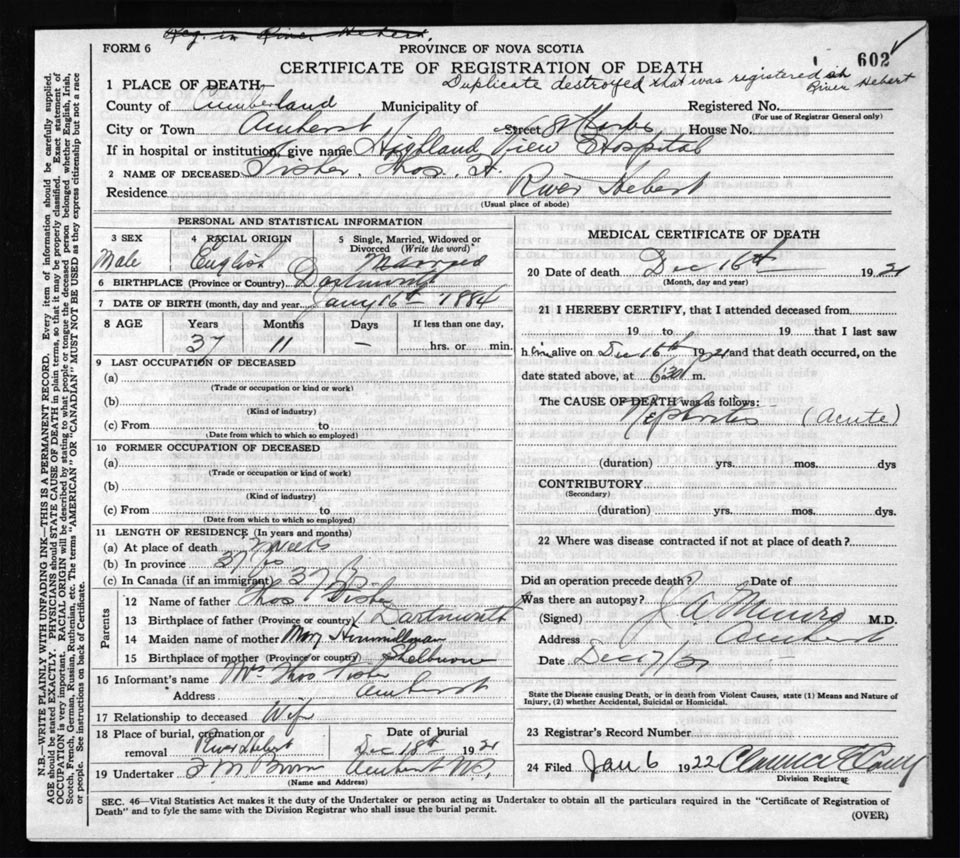 Reg. in River Hebert.
FORM 6
PROVINCE OF NOVA SCOTIA
602
CERTIFICATE OF REGISTRATION OF DEATH
Duplicate destroyed that was registered in River Hebert
1 PLACE OF DEATH—
County of Cumberland Municipality of Registered No.
(For use of Registrar General only)
City or Town Amherst Street House No.
If in hospital or institution, give name Highland View Hospital
2 NAME OF DECEASED Fisher, Thos. H.
Residence River Hebert
(Usual place of abode)
PERSONAL AND STATISTICAL INFORMATION
3 SEX Male
4 RACIAL ORIGIN English
5 Single, Married, Widowed or Divorced (Write the word) Married
6 BIRTHPLACE (Province or Country)
7 DATE OF BIRTH (month, day and year) Jany 16th 1884
8 AGE Years Months Days If less than one day,
37 11 — hrs. or min.
9 LAST OCCUPATION OF DECEASED
(a)
(Trade or occupation or kind or work)
(b)
(Kind of industry)
(c) From to
(Date from which to which so employed)
10 FORMER OCCUPATION OF DECEASED
(a)
(Trade or occupation or kind of work)
(b)
(Kind of industry)
(c) From to
(Date from which to which so employed)
11 LENGTH OF RESIDENCE (In years and months)
(a) At place of death
(b) In province 37 yrs
(c) In Canada (if an immigrant) 37
Parents
12 Name of father Thos Fisher
13 Birthplace of father (Province or country) Dartmouth
14 Maiden name of mother Mary Himmillman
15 Birthplace of mother (Province or country) Shelburne
16 Informant's name Mrs Thos Fisher
Address Amherst
17 Relationship to deceased Wife
18 Place of burial, cremation or removal River Hebert
Date of burial Dec 18th 1921
19 Undertaker F M Brown Amherst N.S.
(Name and Address)
MEDICAL CERTIFICATE OF DEATH
20 Date of death Dec 16th 1921
(Month, day and year)
21 I HEREBY CERTIFY, that I attended deceased from
19 to 19 that I last saw
him alive on Dec 16th 1921 and that death occurred, on the
date stated above, at 630 m.
The CAUSE OF DEATH was as follows:
Nephritis (Acute)
(duration) yrs. mos. dys
CONTRIBUTORY
(Secondary)
(duration) yrs. mos. dys.
22 Where was disease contracted if not at place of death?
Did an operation precede death? Date of
Was there an autopsy?
(Signed) J A Munro M.D.
Address Amherst
Date Dec 17/21
State the Disease causing Death, or in death from Violent Causes, state (1) Means and Nature of
Injury, (2) whether Accidental, Suicidal or Homicidal.
23 Registrar's Record Number
24 Filed Jan 6 1922
Division Registrar
SEC. 46—Vital Statistics Act makes it the duty of the Undertaker or person acting as Undertaker to obtain all the particulars required in the "Certificate of Registration of
Death" and to fyle the same with the Division Registrar who shall issue the burial permit.
(OVER)
N.B.—WRITE PLAINLY WITH UNFADING INK—THIS IS A PERMANENT RECORD. Every item of information should be carefully supplied.
AGE should be stated EXACTLY. PHYSICIANS should STATE CAUSE OF DEATH in plain terms, so that it may be properly classified. Exact statement of
OCCUPATION is very important. RACIAL ORIGIN will be described by stating to what people or tongue the deceased person belonged whether English, Irish,
Scotch, French, German, Russian, Ruthenian, etc. The terms "AMERICAN" OR "CANADIAN" MUST NOT BE USED as they express citizenship but not a race
or people. See instructions on back of Certificate.